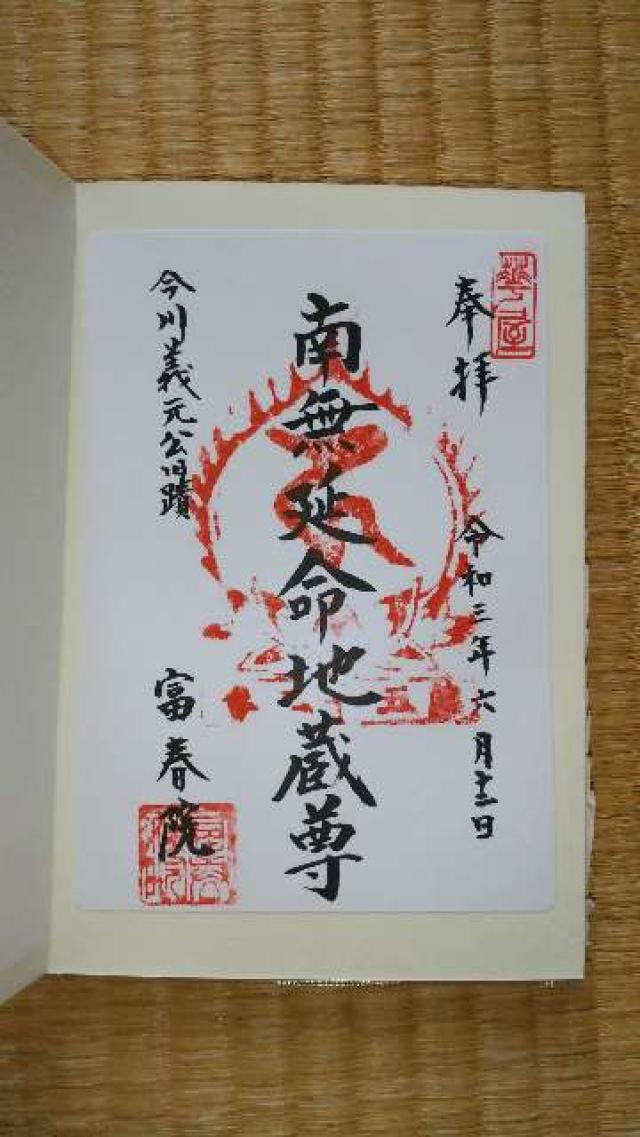 華屋
奉拝
令和三年六月十二日
南無延命地蔵尊
今川義元公旧蹟
富春院